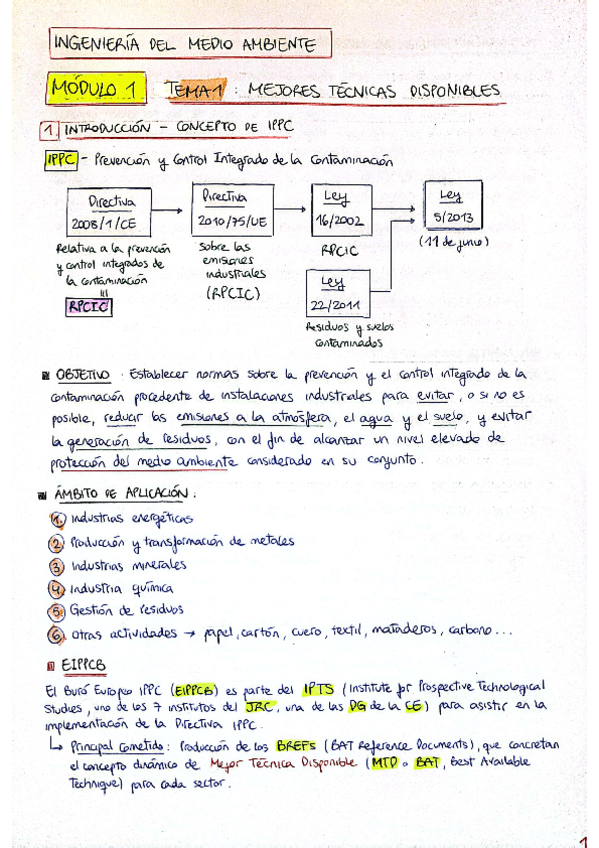 INGENIERÍA DEL MEDIO AMBIENTE
MÓDULO 1 TEMA 1 : MEJORES TÉCNICAS DISPONIBLES
1. INTRODUCCIÓN - CONCEPTO DE IPPC
IPPC - Prevención y Control Integrado de la Contaminación
Directiva
2008/1/CE
Relativa a la prevención
y control integrados de
la contaminación
RPCIC
Directiva
2010/75/UE
Sobre las
emisiones
industriales
(RPCIC)
Ley
16/2002
RPCIC
Ley
22/2011
Residuos y suelos
contaminados
Ley
5/2013
(11 de junio)
OBJETIVO . Establecer normas sobre la prevención y el control integrado de la
contaminación procedente de instalaciones industriales para evitar, o si no es
posible, reducir las emisiones a la atmósfera, el agua y el suelo, y evitar
la generación de residuos, con el fin de alcanzar un nivel elevado de
protección del medio ambiente considerado en su conjunto.
ÁMBITO DE APLICACIÓN :
1. Industrias energéticas
2. Producción y transformación de metales
3. Industrias minerales
4. Industria química
5. Gestión de residuos
6. Otras actividades → papel, cartón, cuero, textil, mataderos, carbono ...
EIPPCB
El Buró Europeo IPPC (EIPPCB) es parte del IPTS (Institute for Prospective Technological
Studies, uno de los 7 institutos del JRC, una de las DG de la CE) para asistir en la
implementación de la Directiva IPPC.
↳ Principal cometido: Producción de los BREFs (BAT Reference Documents), que concretan
el concepto dinámico de Mejor Técnica Disponible (MTD o BAT, Best Available
Technique) para cada sector.
1